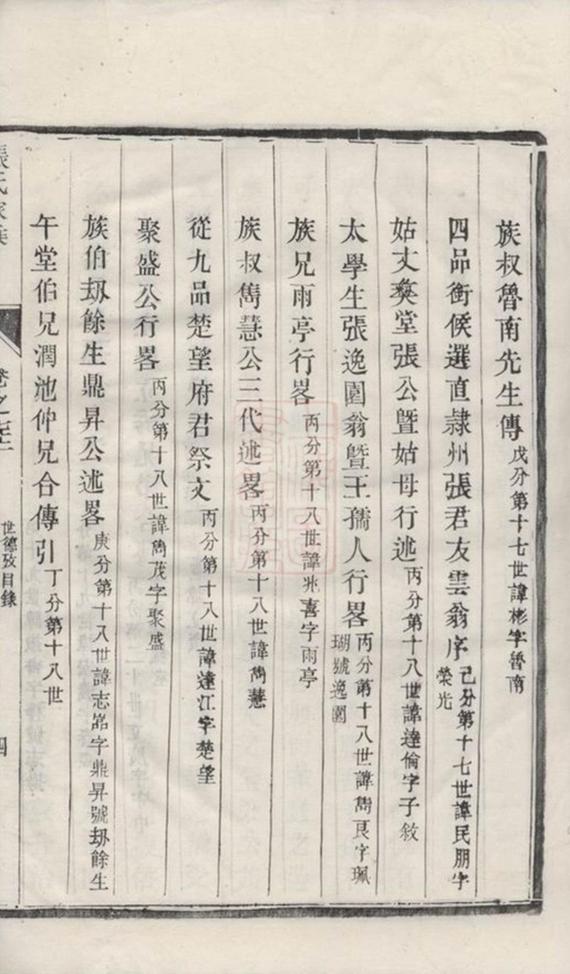 族叔魯南先生傳 戊分第十七世諱彬字魯南
四品銜候選直隷州張君友雲翁序 己分第十七世諱民朋字
榮光
姑丈奏堂張公暨姑母行述 丙分第十八世諱達倫字子敘
太學生張逸園翁暨王孺人行畧 丙分第十八世諱雋良字珮
瑚號逸園
族兄雨亭行畧 丙分第十八世諱兆喜字雨亭
族叔雋慧公三代述畧 丙分第十八世諱雋慧
從九品楚望府君祭文 丙分第十八世諱達江字楚望
聚盛公行畧 丙分第十八世諱雋茂字聚盛
族伯刼餘生鼎昇公述畧 庚分第十八世諱志嵓字鼎昇號刼餘生
午堂伯兄潤池仲兄合傳引 丁分第十八世
張氏家族
卷之
世德攷目錄
四